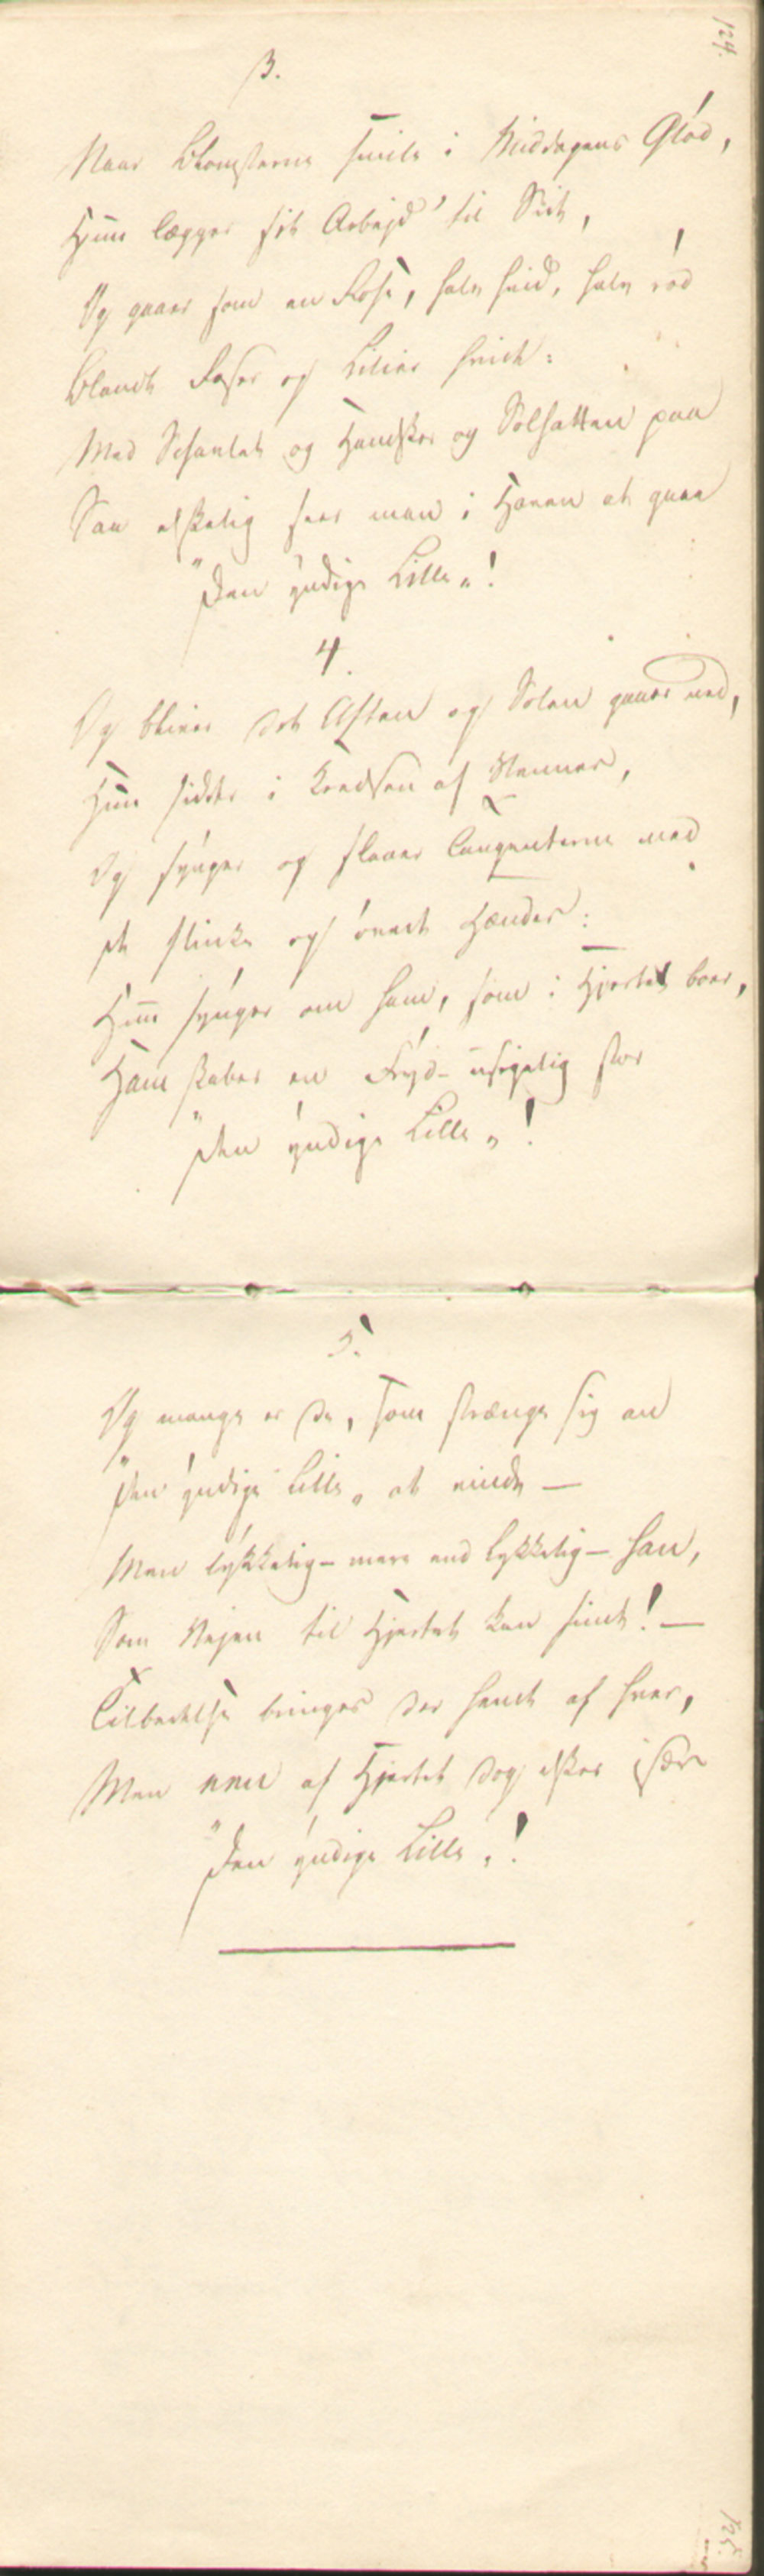 124.
3.
Naar Blomsterne smile i Middagens Glød,
Hun lægger sit Arbejd' til Side,
Og gaaer som en Rose, halv hvid, halv rød
Blandt Roser og Lilier hvide:
Med Schavlet og Handsker og Solhatten paa
Saa elskelig seer man i Haven at gaae
"Den yndige Lille"!
4.
Og bliver det Aften og Solen gaaer ned,
Hun sidder i Kredsen af Venner,
Og synger og slaaer Tangenterne med
De flinke og øvede Hænder:
Hun synger om ham, som i Hjertet boer,
Ham skaber en Fryd - usigelig stor
"Den yndige Lille"!
5.
Og mange er de, som strænge sig an
"Den yndige Lille" at vinde —
Men lykkelig - mere end lykkelig - han,
Som Vejen til Hjertet kan finde! —
Tilbedelse bringes der hende af hver,
Men een af Hjertet dog elsker især
"Den yndige Lille"!
125.